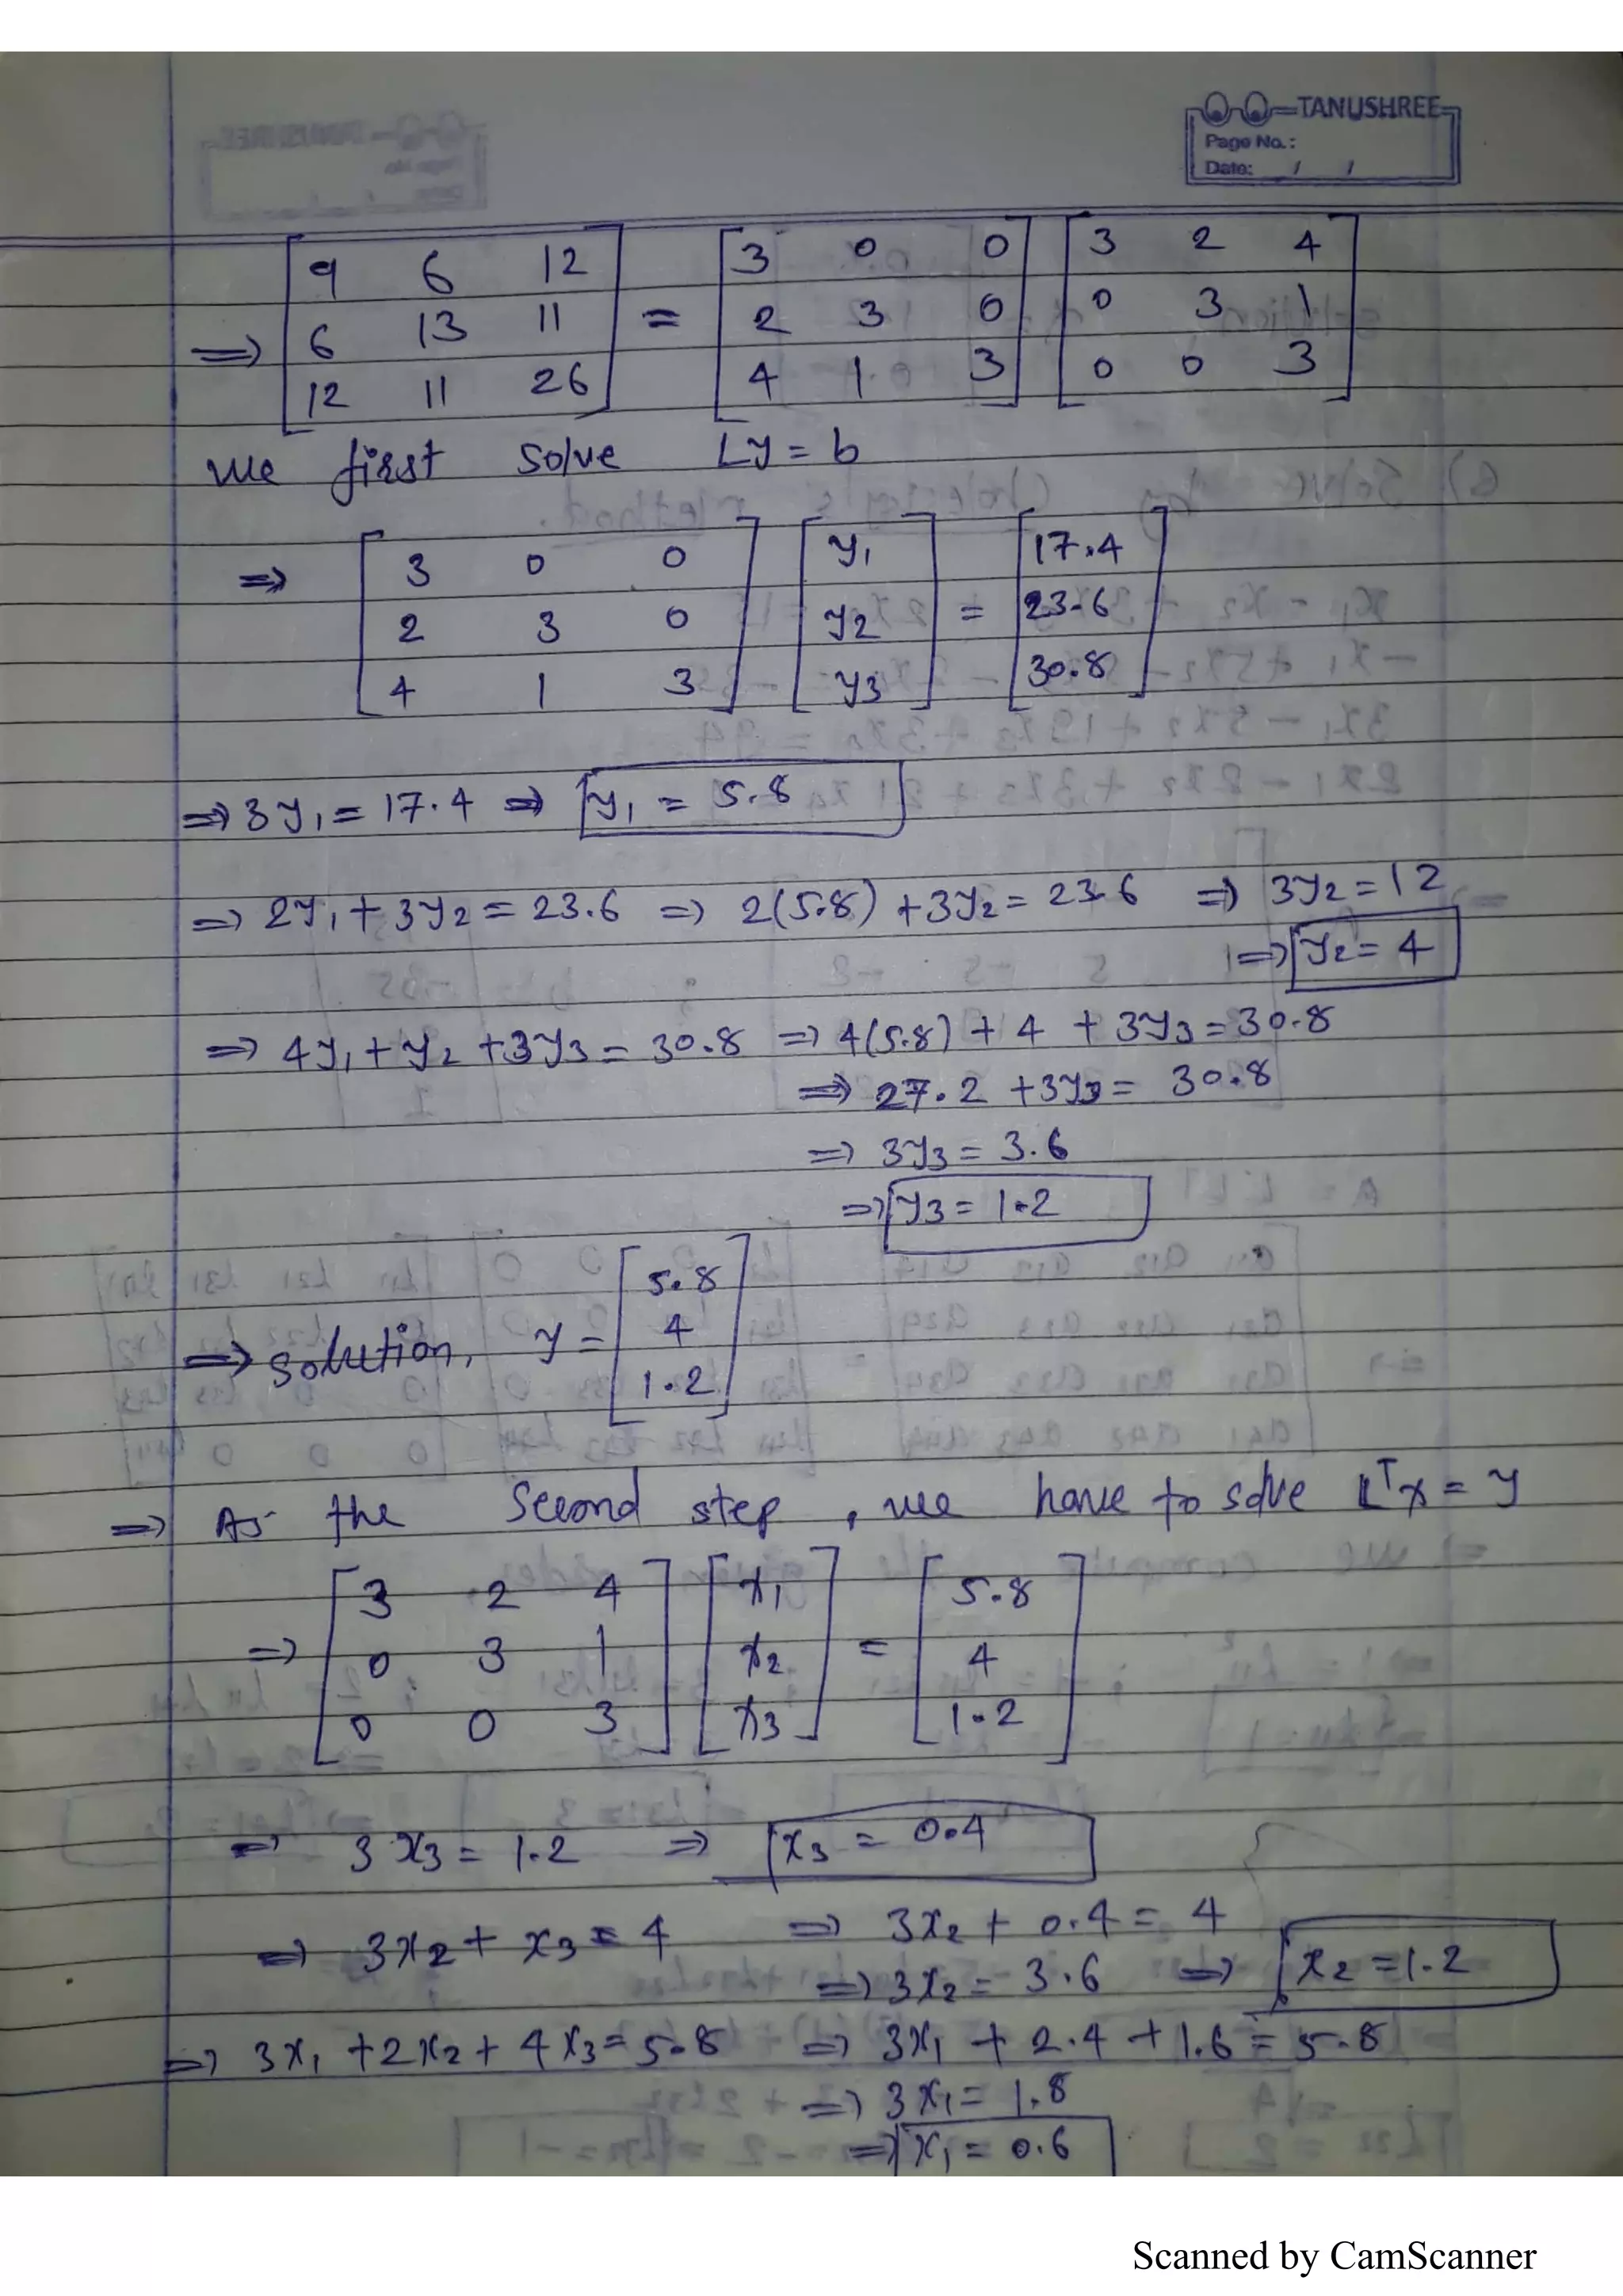 TANUSHREE
Page No.:
Date: / /
⇒ [9 6 12; 6 13 11; 12 11 26] = [3 0 0; 2 3 0; 4 1 3] [3 2 4; 0 3 1; 0 0 3]
we first solve Ly = b
⇒ [3 0 0; 2 3 0; 4 1 3] [y1; y2; y3] = [17.4; 23.6; 30.8]
⇒ 3y1 = 17.4 ⇒ y1 = 5.8
⇒ 2y1 + 3y2 = 23.6 ⇒ 2(5.8) + 3y2 = 23.6 ⇒ 3y2 = 12
⇒ y2 = 4
⇒ 4y1 + y2 + 3y3 = 30.8 ⇒ 4(5.8) + 4 + 3y3 = 30.8
⇒ 27.2 + 3y3 = 30.8
⇒ 3y3 = 3.6
⇒ y3 = 1.2
⇒ solution, y = [5.8; 4; 1.2]
⇒ As the second step, we have to solve L^T x = y
⇒ [3 2 4; 0 3 1; 0 0 3] [x1; x2; x3] = [5.8; 4; 1.2]
⇒ 3x3 = 1.2 ⇒ x3 = 0.4
⇒ 3x2 + x3 = 4 ⇒ 3x2 + 0.4 = 4
⇒ 3x2 = 3.6 ⇒ x2 = 1.2
⇒ 3x1 + 2x2 + 4x3 = 5.8 ⇒ 3x1 + 2.4 + 1.6 = 5.8
⇒ 3x1 = 1.8
⇒ x1 = 0.6
Scanned by CamScanner